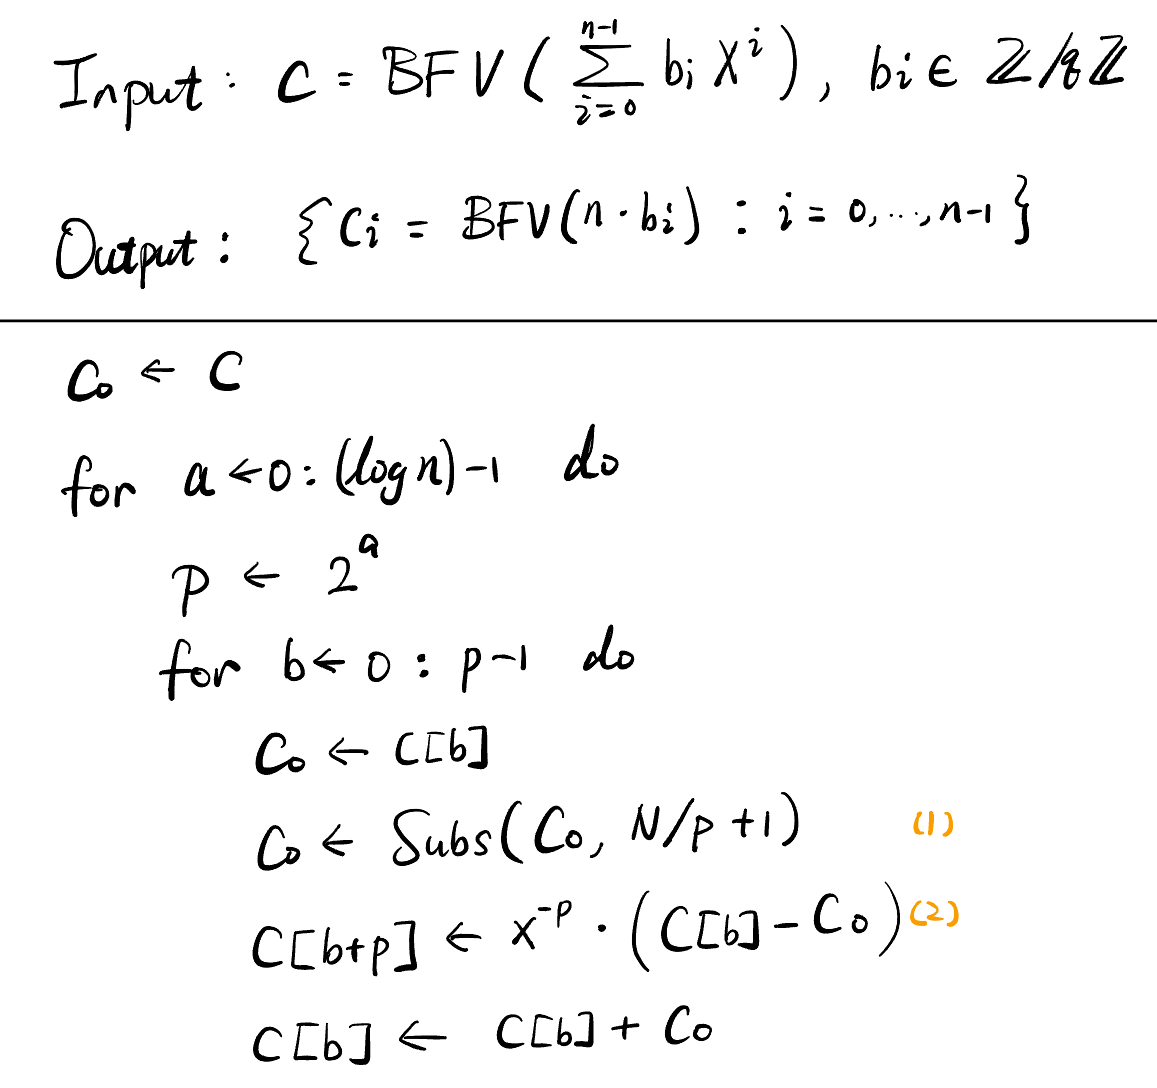 Input : C = BFV( \sum_{i=0}^{n-1} b_i X^i ), b_i ∈ ℤ/qℤ
Output : { C_i = BFV(n · b_i) : i = 0,...,n-1 }
C_0 ← C
for a ← 0 : (log n)-1 do
p ← 2^a
for b ← 0 : p-1 do
C_0 ← C[b]
C_0 ← Subs(C_0, N/p +1) (1)
C[b+p] ← X^{-p} · (C[b] - C_0) (2)
C[b] ← C[b] + C_0